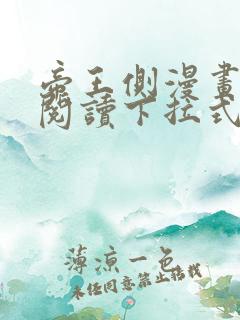 帝王側漫畫
閱讀下拉式
薄涼一色
未經同意禁止搭載